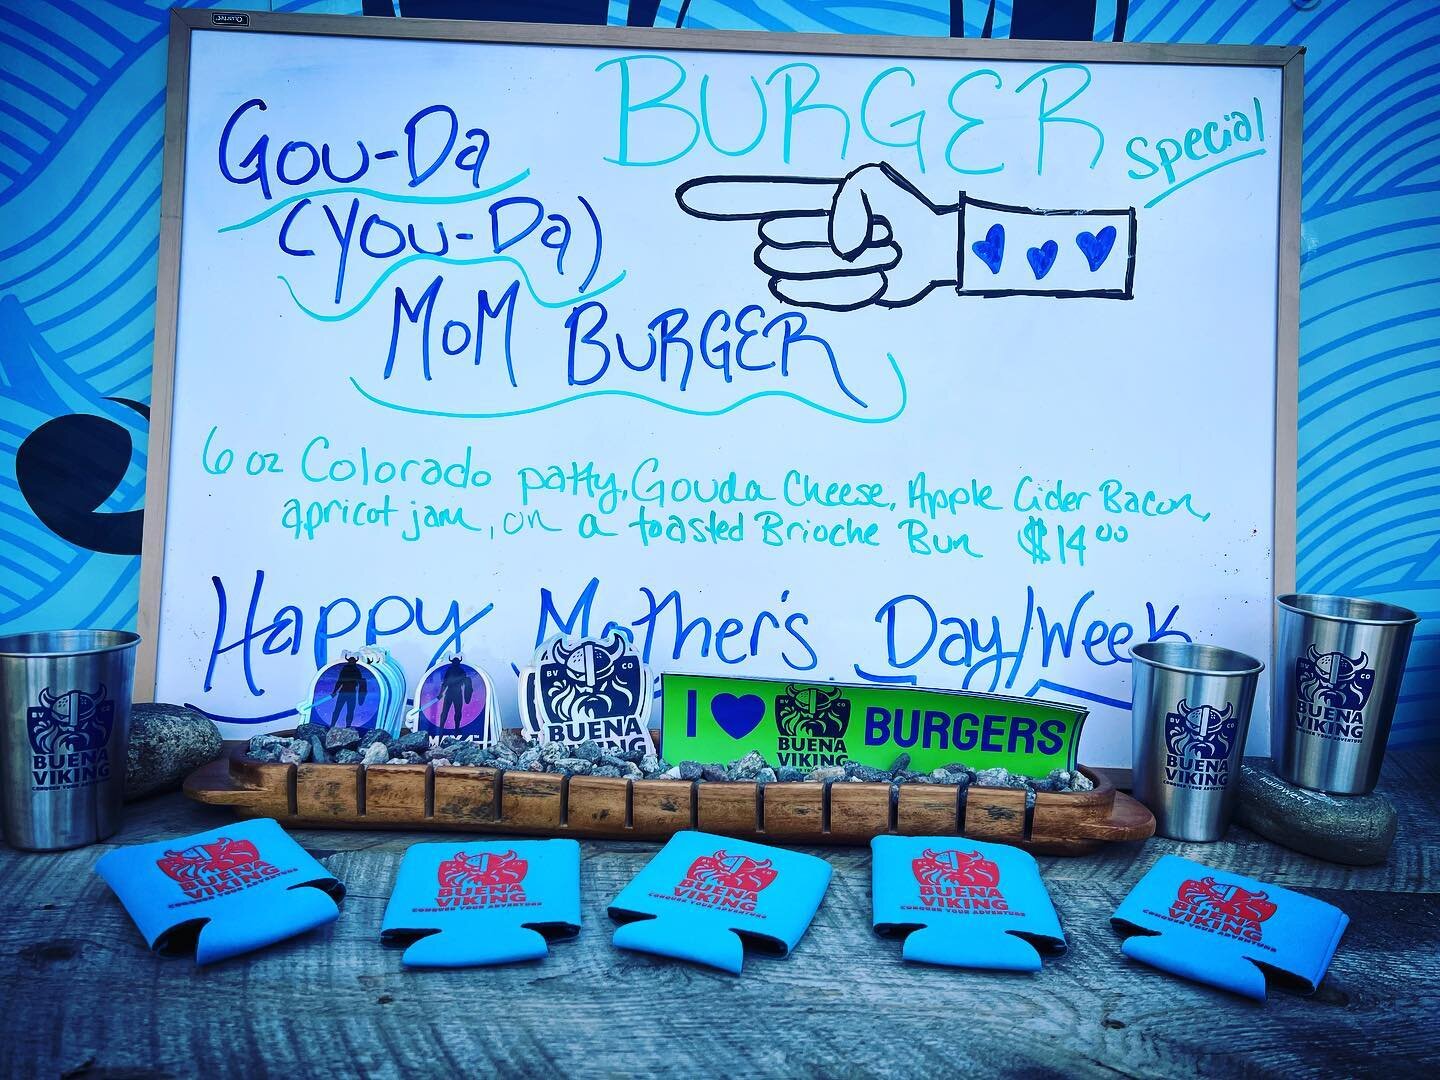 BURGER
Special
Gou-Da
(You-Da)
MoM BURGER
6 oz Colorado patty, Gouda Cheese, Apple Cider Bacon,
apricot jam, on a toasted Brioche Bun $14.00
Happy Mother's Day/Week
BV CO
BUENA
VIKING
I ♥ BV CO BUENA VIKING BURGERS
BV CO
BUENA
VIKING
CONQUER YOUR ADVENTURE
BV CO
BUENA
VIKING
CONQUER YOUR ADVENTURE
BV CO
BUENA
VIKING
CONQUER YOUR ADVENTURE
BUENA
VIKING
CONQUER YOUR ADVENTURE
BUENA
VIKING
CONQUER YOUR ADVENTURE
BUENA
VIKING
CONQUER YOUR ADVENTURE
BUENA
VIKING
CONQUER YOUR ADVENTURE
BUENA
VIKING
CONQUER YOUR ADVENTURE